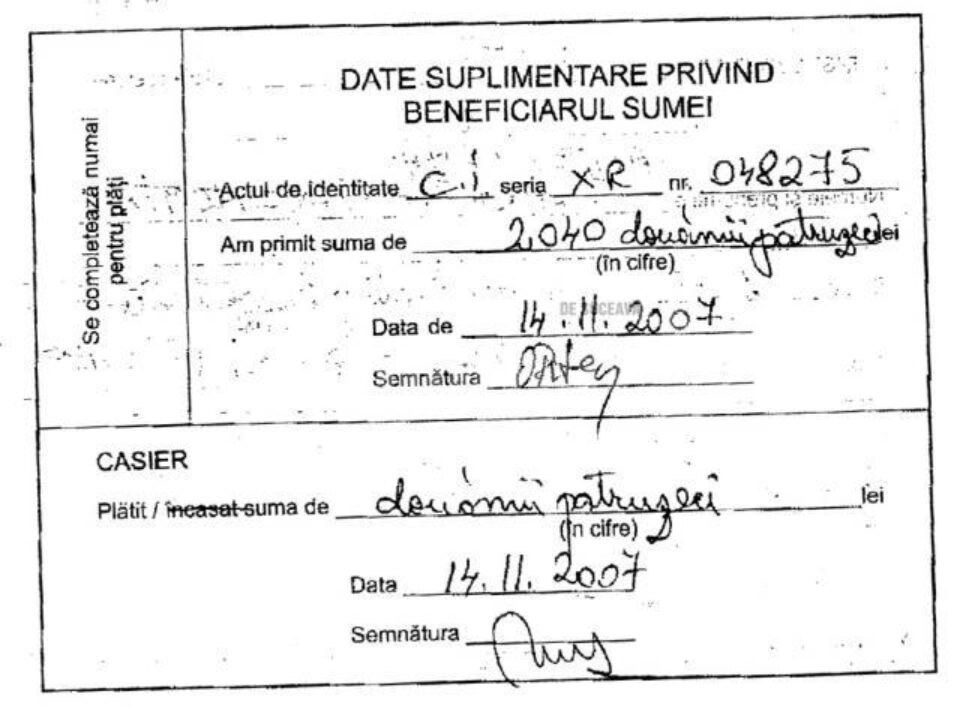 Se completează numai
pentru plăți
DATE SUPLIMENTARE PRIVIND
BENEFICIARUL SUMEI
Actul de identitate C.I. seria XR nr. 048275
Am primit suma de 2.040 douămii patruzeci lei
(în cifre)
DE SUCEAVA
Data de 14.11.2007
Semnătura
CASIER
Plătit / încasat suma de douămii patruzeci lei
(în cifre)
Data 14.11.2007
Semnătura